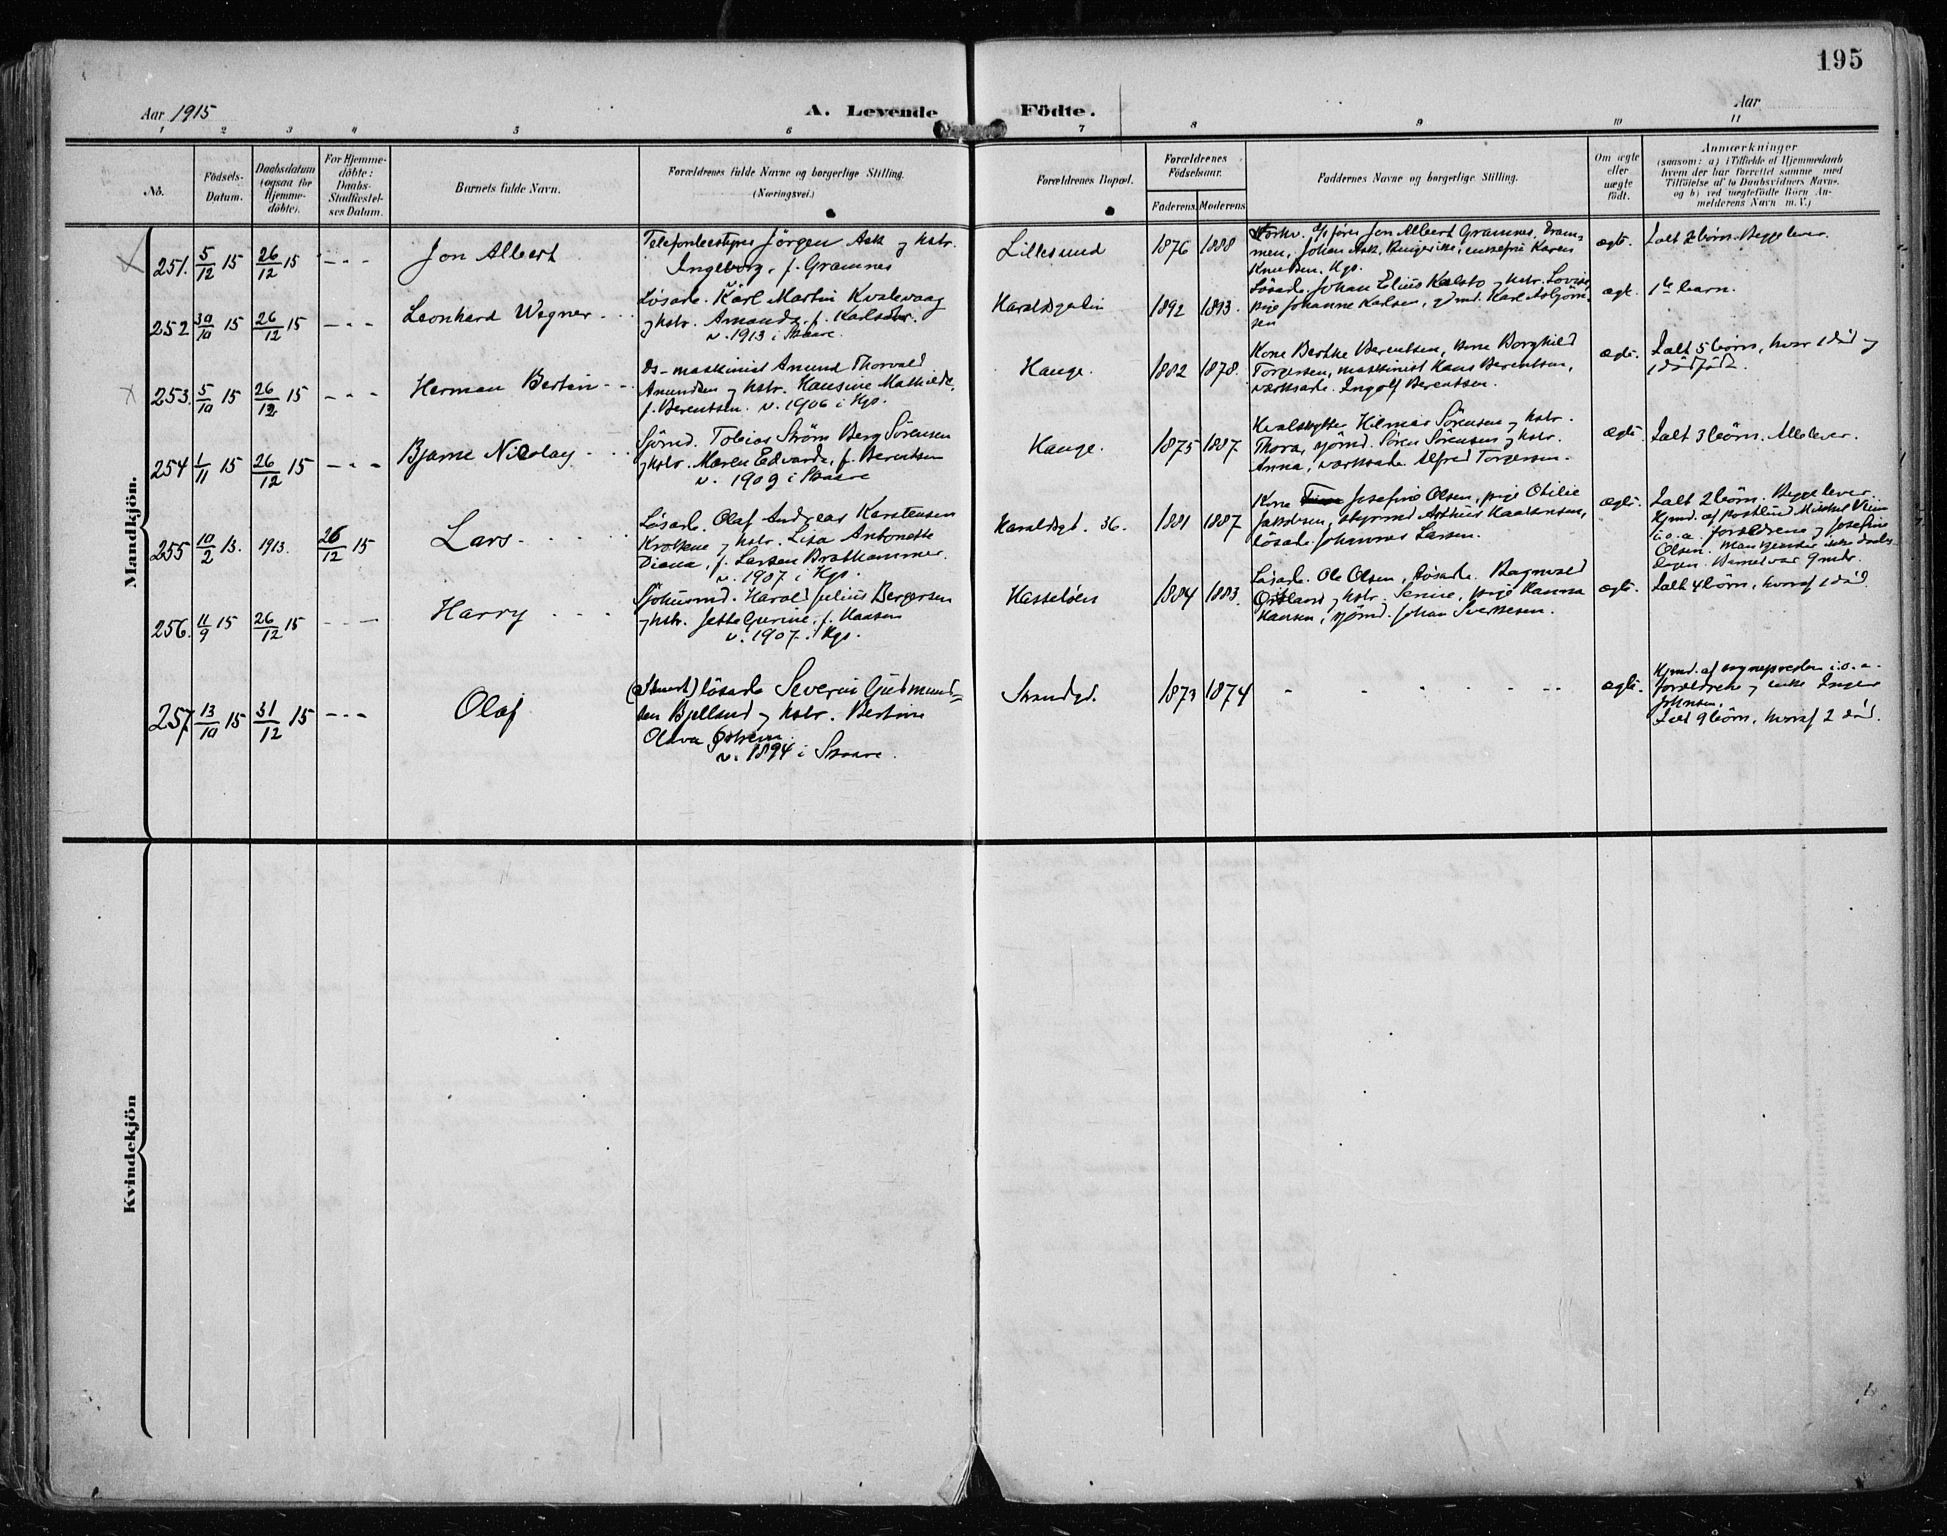 195
Aar 1915
A. Levende
Födte.
Aar
1 2 3 4 5 6 7 8 9 10 11
No.
Födsels-Datum.
Daabsdatum (ogsaa for Hjemme-döbte).
For Hjemme-döbte: Daabs-Stadfæstel-ses Datum.
Barnets fulde Navn.
Forældrenes fulde Navne og borgerlige Stilling. (Næringsvei.)
Forældrenes Bopæl.
Forældrenes Födselsaar.
Faderens Moderens
Faddernes Navne og borgerlige Stilling.
Om ægte eller uægte födt.
Anmærkninger
(saasom: a) i Tilfælde af Hjemmedaab
hvem der har forrettet samme med
Tilföielse af to Daabsvidners Navne,
og b) ved uægtefödte Börn An-
melderens Navn m. V.)
Mandkjön.
251. 5/12 15 26/12 15 - - - Jon Albert
Telefonbestyrer Jörgen Ask og hstr.
Ingeborg, f. Gramnes
Lillesund 1876 1888
Jon Albert Gramnes, Dram-
men, Johan Ask, Ringerike, enkefrue Karen
Knudsen, Hgs.
ægte. Ialt 2 börn. Begge lever.
252 30/10 15 26/12 15 - - - Leonhard Wegner
Løsarb. Karl Martin Kvalevaag
og hstr. Amanda, f. Karlsdtr.
v. 1913 i Skaare
Haraldsgaten 1892 1893.
Løsarb. Johan Elius Kalstø og hstr. Lovise,
pige Johanne Karlsen, Karl Asbjörn-
sen
ægt. 1te barn.
253. 5/10 15 26/12 15 - - - Herman Bertin
Ds-maskinist Amund Thorvald
Amundsen og hstr. Hansine Mathilde,
f. Berentsen. v. 1906 i Hgs.
Hauge. 1882 1878.
Kone Berthe Berentsen, Kone Borghild
Torgersen, maskinist Hans Berentsen,
værksarb. Ingolf Berentsen.
ægte. Ialt 5 börn, hvor 1 död og
1 dödfödt.
254 1/11 15 26/12 15 - - - Bjarne Nicolay
Sjömd. Tobias Strøm Berg Sörensen
og hstr. Maren Edvarda, f. Berentsen
v. 1909 i Skaare
Hauge. 1875 1887
Hvalskytter Hilmar Sörensen og hstr.
Thora, sjömd. Sören Sörensen og hstr.
Anna, værksarb. Alfred Torgersen.
ægte. Ialt 3 börn. Alle lever.
255 10/2 13. 1913. 26/12 15 Lars
Løsarb. Olaf Andreas Karstensen
og hstr. Lisa Antonette
Diana, f. Larsen Brathammer.
v. 1907 i Hgs.
Haraldsgt. 36. 1881 1887
Kone Josefine Olsen, pige Otilie
Jakobsen, styrmd. Arthur Haakonsen,
løsarb. Johannes Larsen.
ægte. Ialt 2 börn. Begge lever.
Hjmd. af postbud Mikkel
i.o.a. forældrene og Josefine
Olsen. Man husker ikke daabs-
dagen. Barnet var 9 mdr.
256. 11/9 15 26/12 15 - - - Harry
Sjöhusmd. Harald Julius Bergersen
og hstr. Jette Gurine, f. Hansen
v. 1907 i Hgs.
Hasseløen 1884 1883.
Løsarb. Ole Olsen, løsarb. Ragnvald
Östland og hstr. Serine, pige Hanna
Hansen, sjömd. Johan Sverkesen.
ægte. Ialt 4 börn, hvoraf 1 död.
257. 13/10 15 31/12 15 - - - Olaf
løsarb. Severin Gudmund-
sen Bjelland og hstr. Bertine
Olava Östrem.
v. 1894 i Skaare.
Strandgd. 1873 1874
ægte. Hjmd. af sognepresten i.o.a.
forældrene og enke Inger
Johnsen.
Ialt 9 börn, hvoraf 2 död.
Kvindekjön